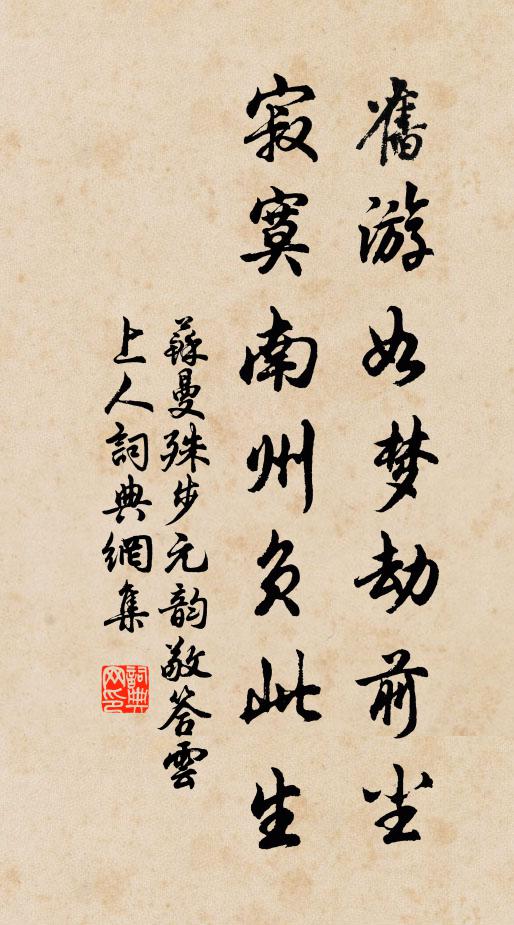 舊游如梦劫前尘
寂寞南州负此生
蘇曼殊步元韵敬答雲
上人詞典網集
詞典网印